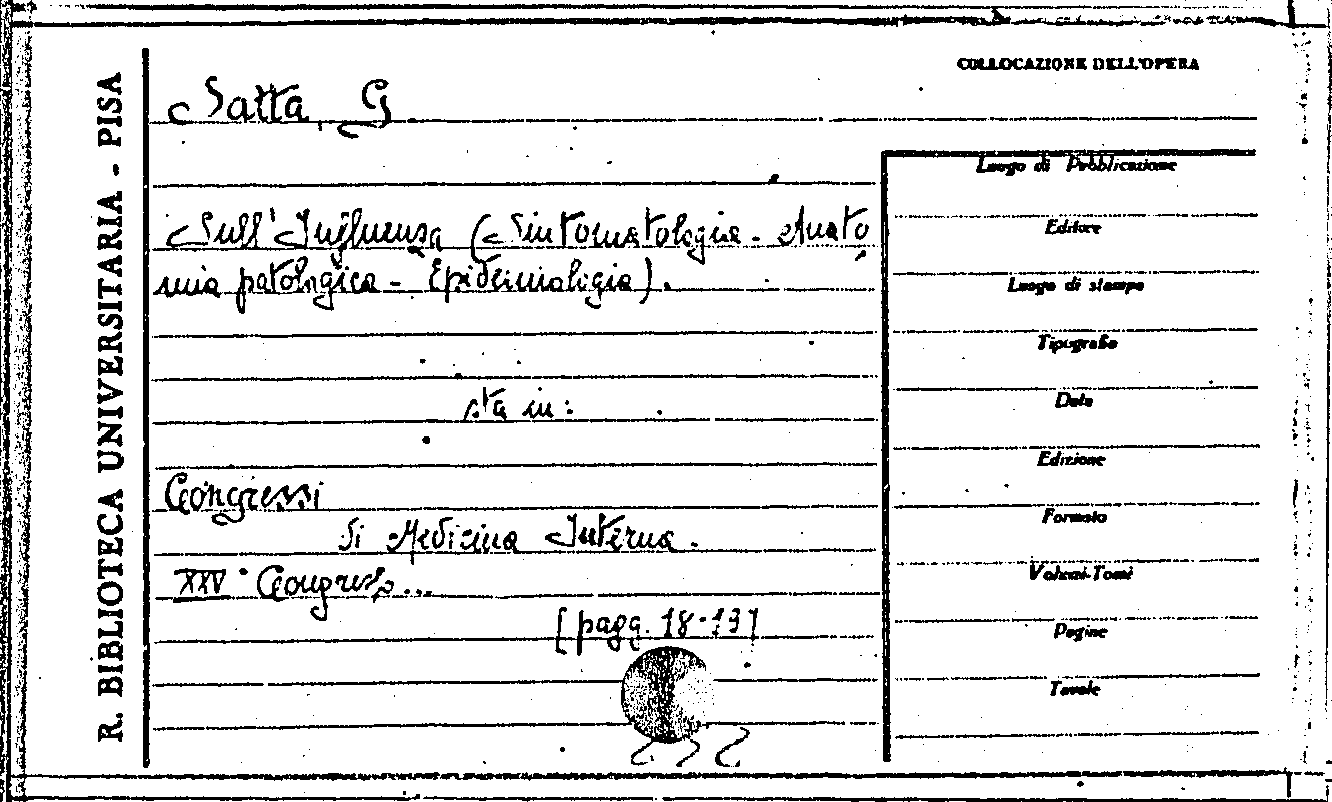 R. BIBLIOTECA UNIVERSITARIA - PISA
COLLOCAZIONE DELL'OPERA
Satta, G.
Sull'Influenza (Sintomatologia - Anato
mia patologica - Epidemiologia).
sta in:
Congressi
di Medicina Interna.
XXV° Congresso...
[pagg. 18-19]
Luogo di Pubblicazione
Editore
Luogo di stampa
Tipografia
Data
Edizione
Formato
Volumi-Tomi
Pagine
Tavole